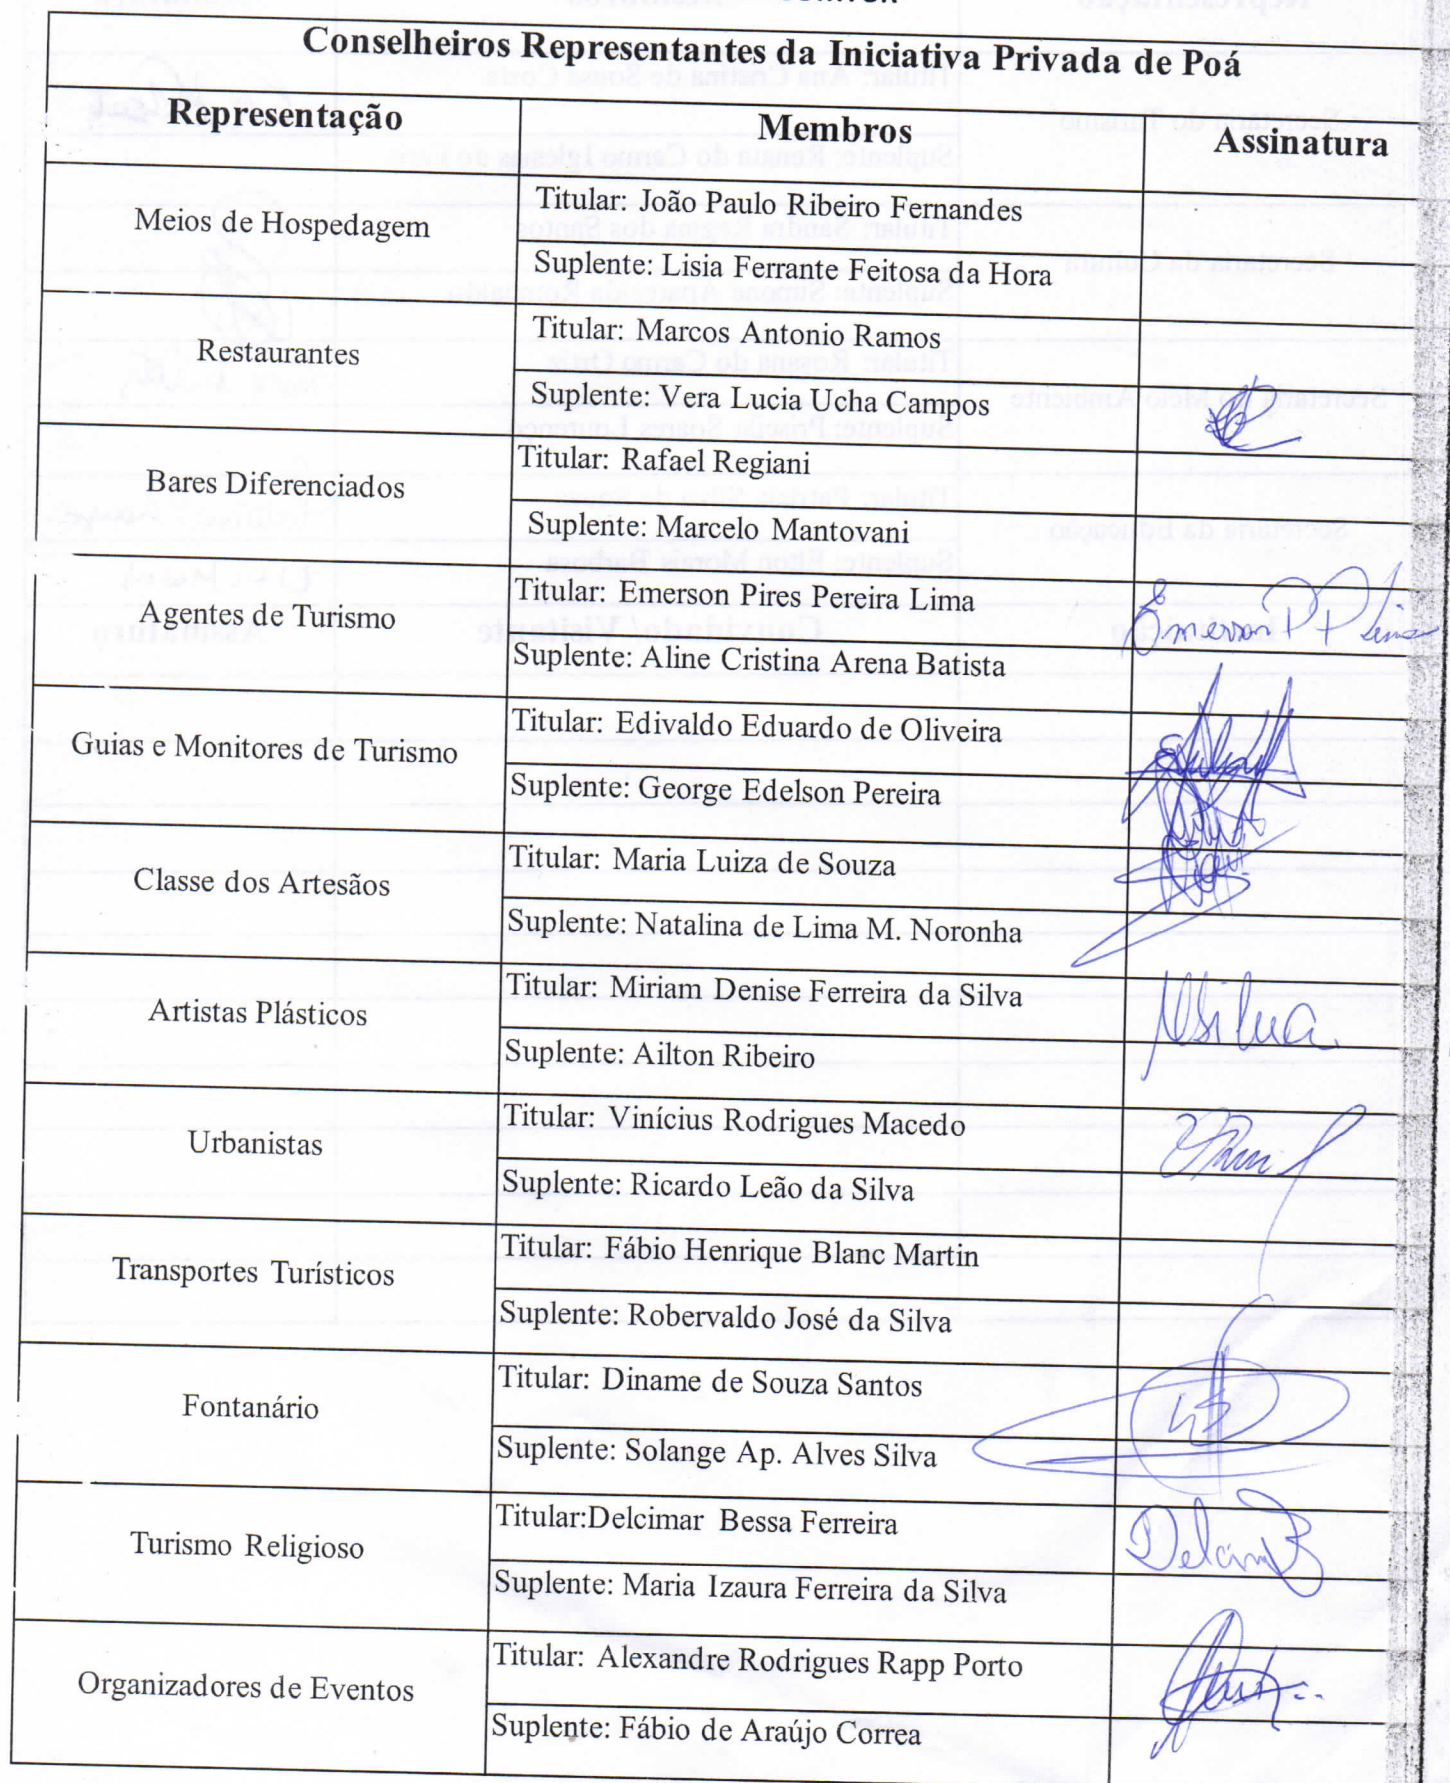 Conselheiros Representantes da Iniciativa Privada de Poá
Representação Membros Assinatura
Meios de Hospedagem
Titular: João Paulo Ribeiro Fernandes
Suplente: Lisia Ferrante Feitosa da Hora
Restaurantes
Titular: Marcos Antonio Ramos
Suplente: Vera Lucia Ucha Campos
Bares Diferenciados
Titular: Rafael Regiani
Suplente: Marcelo Mantovani
Agentes de Turismo
Titular: Emerson Pires Pereira Lima
Emerson P P Lima
Suplente: Aline Cristina Arena Batista
Guias e Monitores de Turismo
Titular: Edivaldo Eduardo de Oliveira
Suplente: George Edelson Pereira
Classe dos Artesãos
Titular: Maria Luiza de Souza
Suplente: Natalina de Lima M. Noronha
Artistas Plásticos
Titular: Miriam Denise Ferreira da Silva
Suplente: Ailton Ribeiro
Urbanistas
Titular: Vinícius Rodrigues Macedo
Suplente: Ricardo Leão da Silva
Transportes Turísticos
Titular: Fábio Henrique Blanc Martin
Suplente: Robervaldo José da Silva
Fontanário
Titular: Diname de Souza Santos
Suplente: Solange Ap. Alves Silva
Turismo Religioso
Titular:Delcimar Bessa Ferreira
Suplente: Maria Izaura Ferreira da Silva
Organizadores de Eventos
Titular: Alexandre Rodrigues Rapp Porto
Suplente: Fábio de Araújo Correa